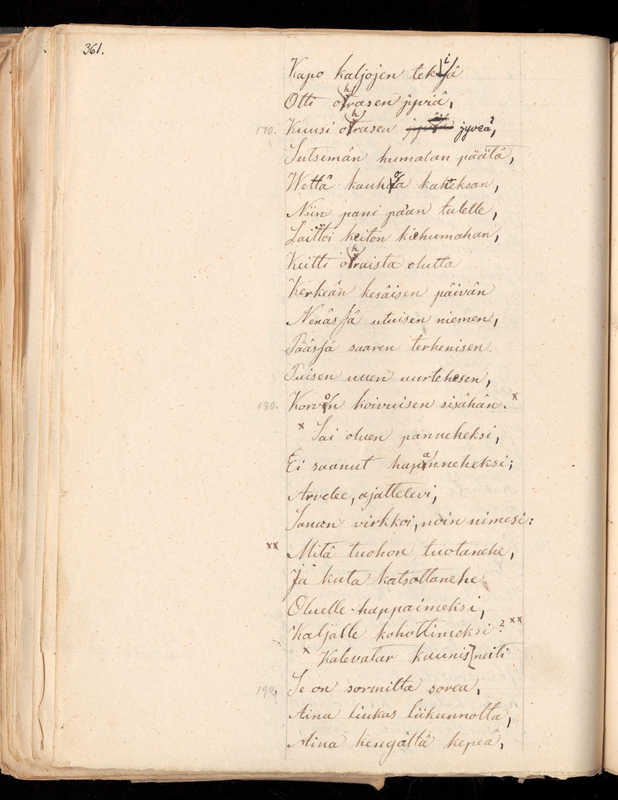 361.
Kapo kaljojen tekiä
Otti ohrasen jyviä,
170. Kuusi ohrasen jyveä,
Seitsemän humalan päätä,
Wettä kauhoa kaheksan,
Niin pani pä'an tulelle,
Laittoi keiton kiehumahan,
Keitti ohraista olutta
Kerkeän kesäisen päivän
Nenässä utuisen niemen,
Päässä saaren terhenisen
Puisen uuen uurtehesen,
180. Korvon koivuisen sisähän. x
x Sai oluen panneheksi,
Ei saanut hapanneheksi;
Arvelee, ajattelevi,
Sanan virkkoi, noin nimesi:
xx Mitä tuohon tuotanehe,
Ja kuta katsottanehe
Oluelle happaimeksi,
Kaljalle kohottimeksi? xx
x Kalevatar kaunis neiti
190. Se on sormilta sorea,
Aina liukas liikunnolta,
Aina kengältä kepeä,